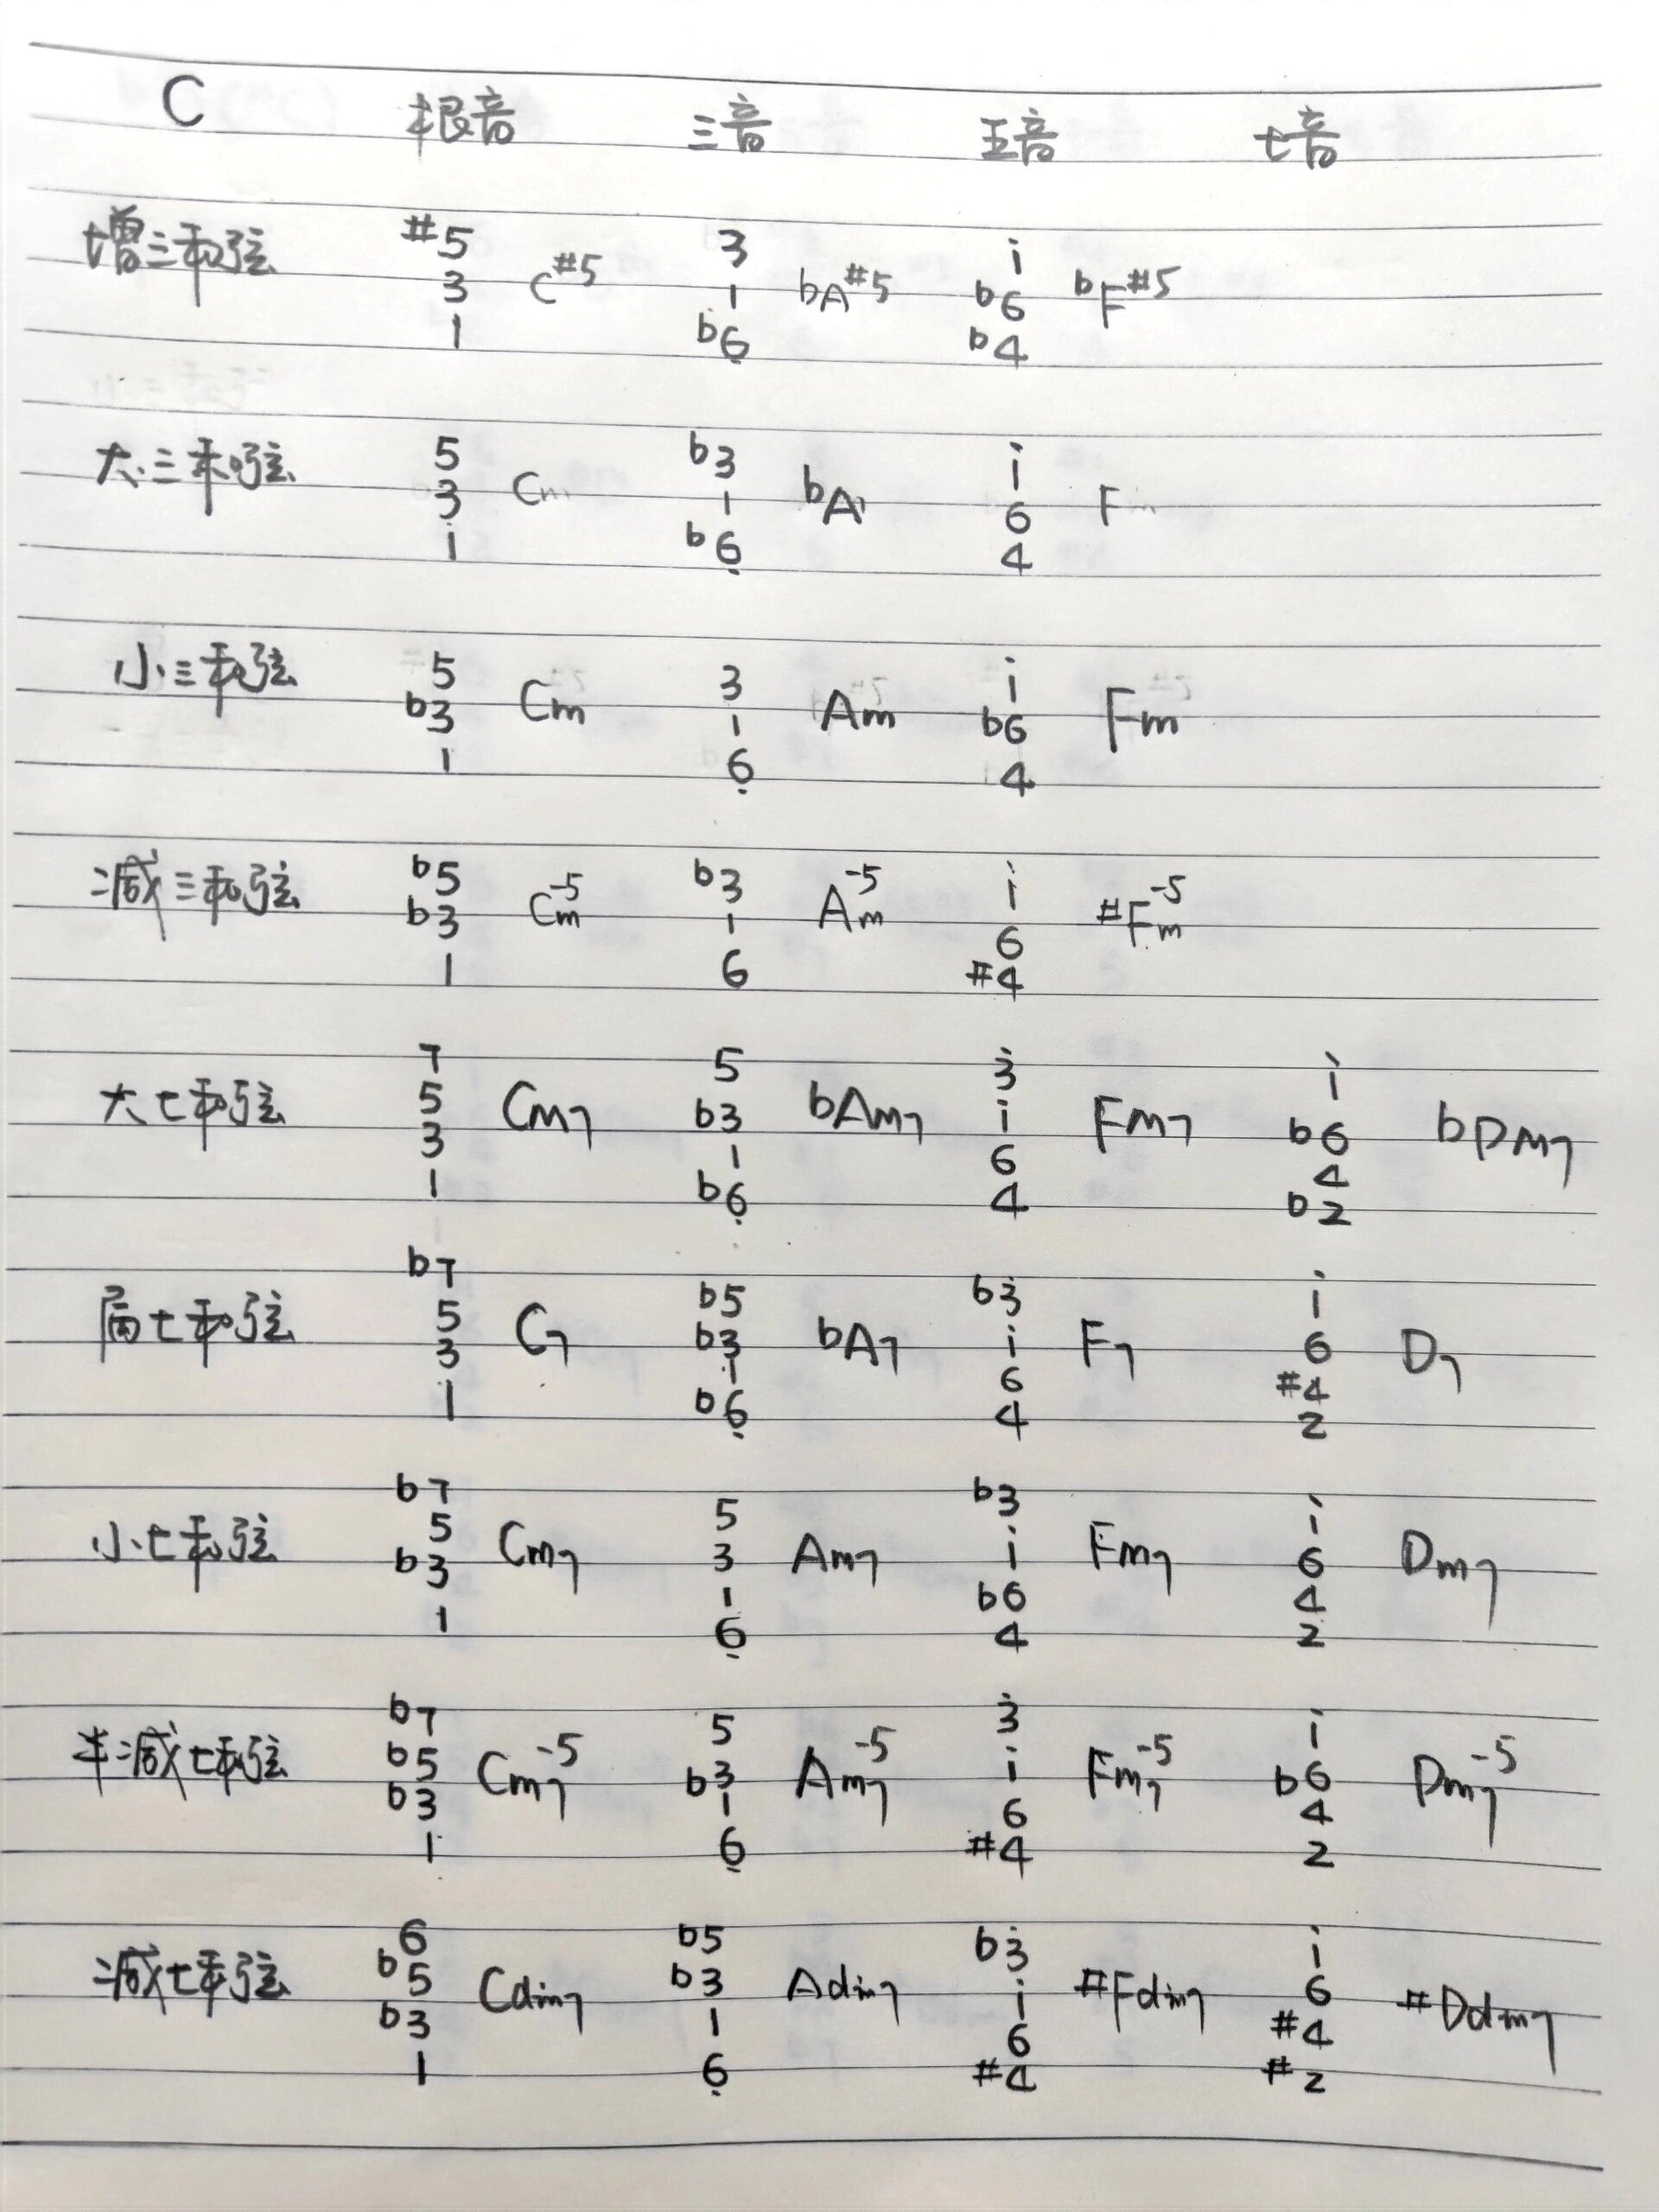 C 根音 三音 五音 七音
#5 3 i
增三和弦 3 C#5 1 bA#5 b6 bF#5
1 b6̣ b4
5 b3 i
大三和弦 3 C 1 bA 6 F
1 b6̣ 4
5 3 i
小三和弦 b3 Cm 1 Am b6 Fm
1 6̣ 4
b5 b3 i
减三和弦 b3 Cm-5 1 Am-5 6 #Fm-5
1 6 #4
7 5 3̇ i
大七和弦 5 CM7 b3 bAM7 i FM7 b6 bDM7
3 1 6 4
1 b6̣ 4 b2
b7 b5 b3̇ i
属七和弦 5 C7 b3 bA7 i F7 6 D7
3 1 6 #4
1 b6̣ 4 2
b7 5 b3̇ i
小七和弦 5 Cm7 3 Am7 i Fm7 6 Dm7
b3 1 b6 4
1 6̣ 4 2
b7 5 3̇ i
半减七和弦 b5 Cm7-5 b3 Am7-5 i Fm7-5 b6 Dm7-5
b3 1 6 4
1 6̣ #4 2
6 b5 b3̇ i
减七和弦 b5 Cdim7 b3 Adim7 i #Fdim7 6 #Ddim7
b3 1 6 #4
1 6̣ #4 #2